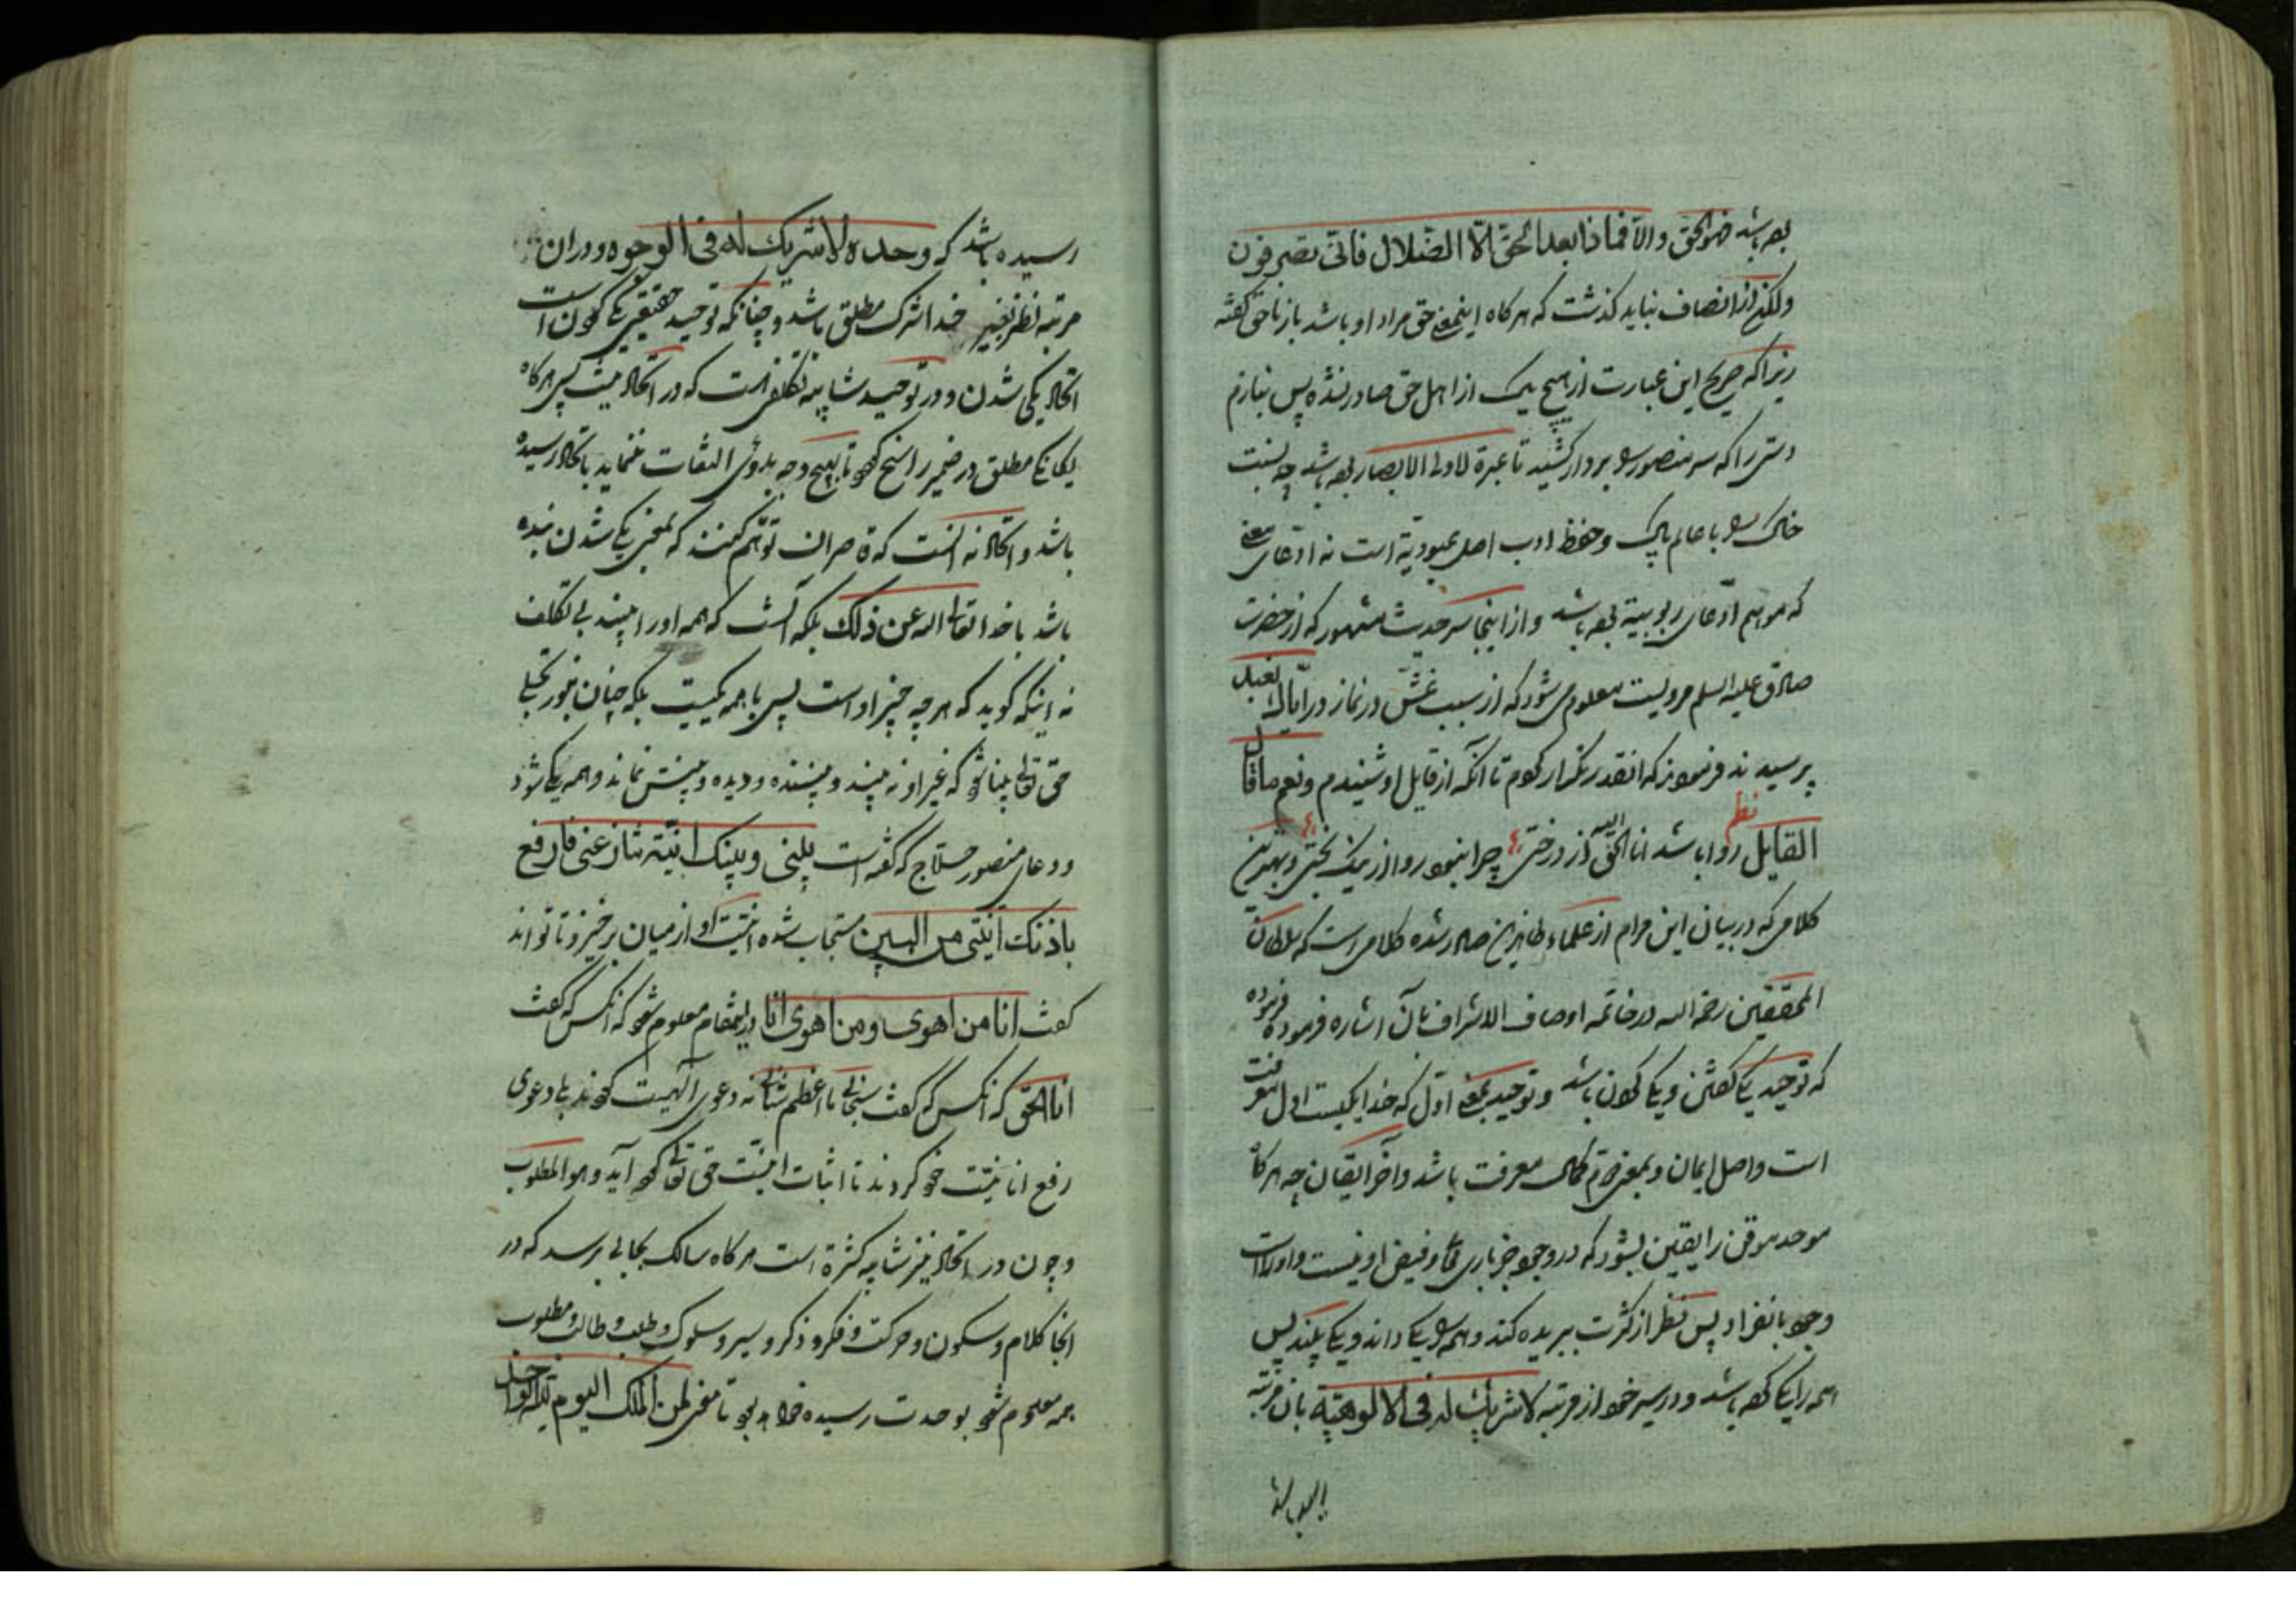 بوده باشد فهو الحق والا فما ذا بعد الحق الا الضلال فانی تصرفون
ولکن از انصاف نباید کذشت که هر کاه اینمعنی حق مراد او باشد باز ناحق کفته
زیرا که صریح این عبارت از هیچ یک از اهل حق صادر نشده پس بنازم
دستی را که سر منصور را بر دار کشید تا عبرة لاولی الابصار بوده باشد چه نسبت
خاک را با عالم پاک و حفظ ادب اصل عبودیة است نه ادعای معنی
که موهم ادعای ربوبیة بوده باشد و از اینجا سر حدیث مشهور که از حضرت
صادق علیه السلم مرویست معلوم می شود که از سبب غشش در نماز در ایاک نعبد
پرسیدند فرمودند که انقدر تکرار کردم تا آنکه از قایل او شنیدم و نعم ما قال
نظم
القایل روا باشد انا الحق از درختی چرا نبود روا از نیک بختی و بهترین
کلامی که در بیان این مرام از علماء طاهرین صادر شده کلامی است که سلطان
المحققین رحمه الله در خاتمه اوصاف الاشراف بآن اشاره فرموده فرموده
که توحید یکی کفتن و یکی کردن باشد و توحید بمعنی اول که خدا یکیست اول معرفت
است و اصل ایمان و بمعنی دوم کمال معرفت باشد و آخر ایقان چه هرکاه
موحد موقن را یقین بشود که در وجود جز باری تعالی و فیض او نیست و او راست
وجود بانفراد پس نظر از کثرت ببریده کند و همه را یکی داند و یکی بیند پس
همه را یکی کرده باشد و در سیر خود از مرتبه لا شریک له فی الالوهیة بان مرتبه
رسیده باشد
رسیده باشد که وحده لا شریک له فی الوجود و در ان
مرتبه نظر بغیر خدا شرک مطلق باشد و چنانکه توحید حقیقی یکی کردن است
اتحاد یکی شدن و در توحید شایبه تکلفی است که در اتحاد نیست پس هرکاه
یکانکی مطلق در ضمیر راسخ کردد تا بهیچ وجه بدوئی التفات ننماید باتحاد رسیده
باشد و اتحاد نه انست که قاصران توهم کنند که بمعنی یکی شدن بنده
باشد با خدا تعالی الله عن ذلک بلکه آنست که همه او را بیند بی تکلف
نه اینکه کوید که هر چه جز او است پس با همه یکیست بلکه چنان بنور تجلی
حق تعالی بینا شود که غیر او نه بیند و بیننده و دیده و بینش نماند و همه یکی شود
و دعای منصور حلاج که کفته است بینی و بینک انیة تنازعنی فارفع
باذنک انیتی من البین مستجاب شده انیت او از میان برخیزد تا تواند
کفت انا من اهوی و من اهوی انا در اینمقام معلوم شود که انکس که کفت
انا الحق که انکس که کفت سبحانی ما اعظم شانی نه دعوی الهیت کردند بل دعوی
رفع انانیت خود کردند تا اثبات انیت حق تعالی کرده آید و هو المطلوب
و چون در اتحاد نیز شایبه کثرة است هر کاه سالک بجائی برسد که در
انجا کلام و سکون و حرکت و فکر و ذکر و سیر و سلوک و طلب و طالب و مطلوب
همه معدوم شود بوحدت رسیده خواهد بود تا معنی لمن الملک الیوم لله الواحد